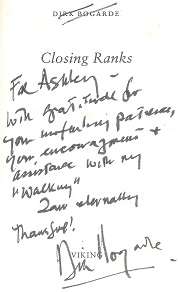 DIRK BOGARDE
Closing Ranks
For Ashley –
with gratitude for
your unfailing patience,
your encouragement +
assistance with my
"Walking"
I am eternally
Thankful!
VIKING
Dirk Bogarde